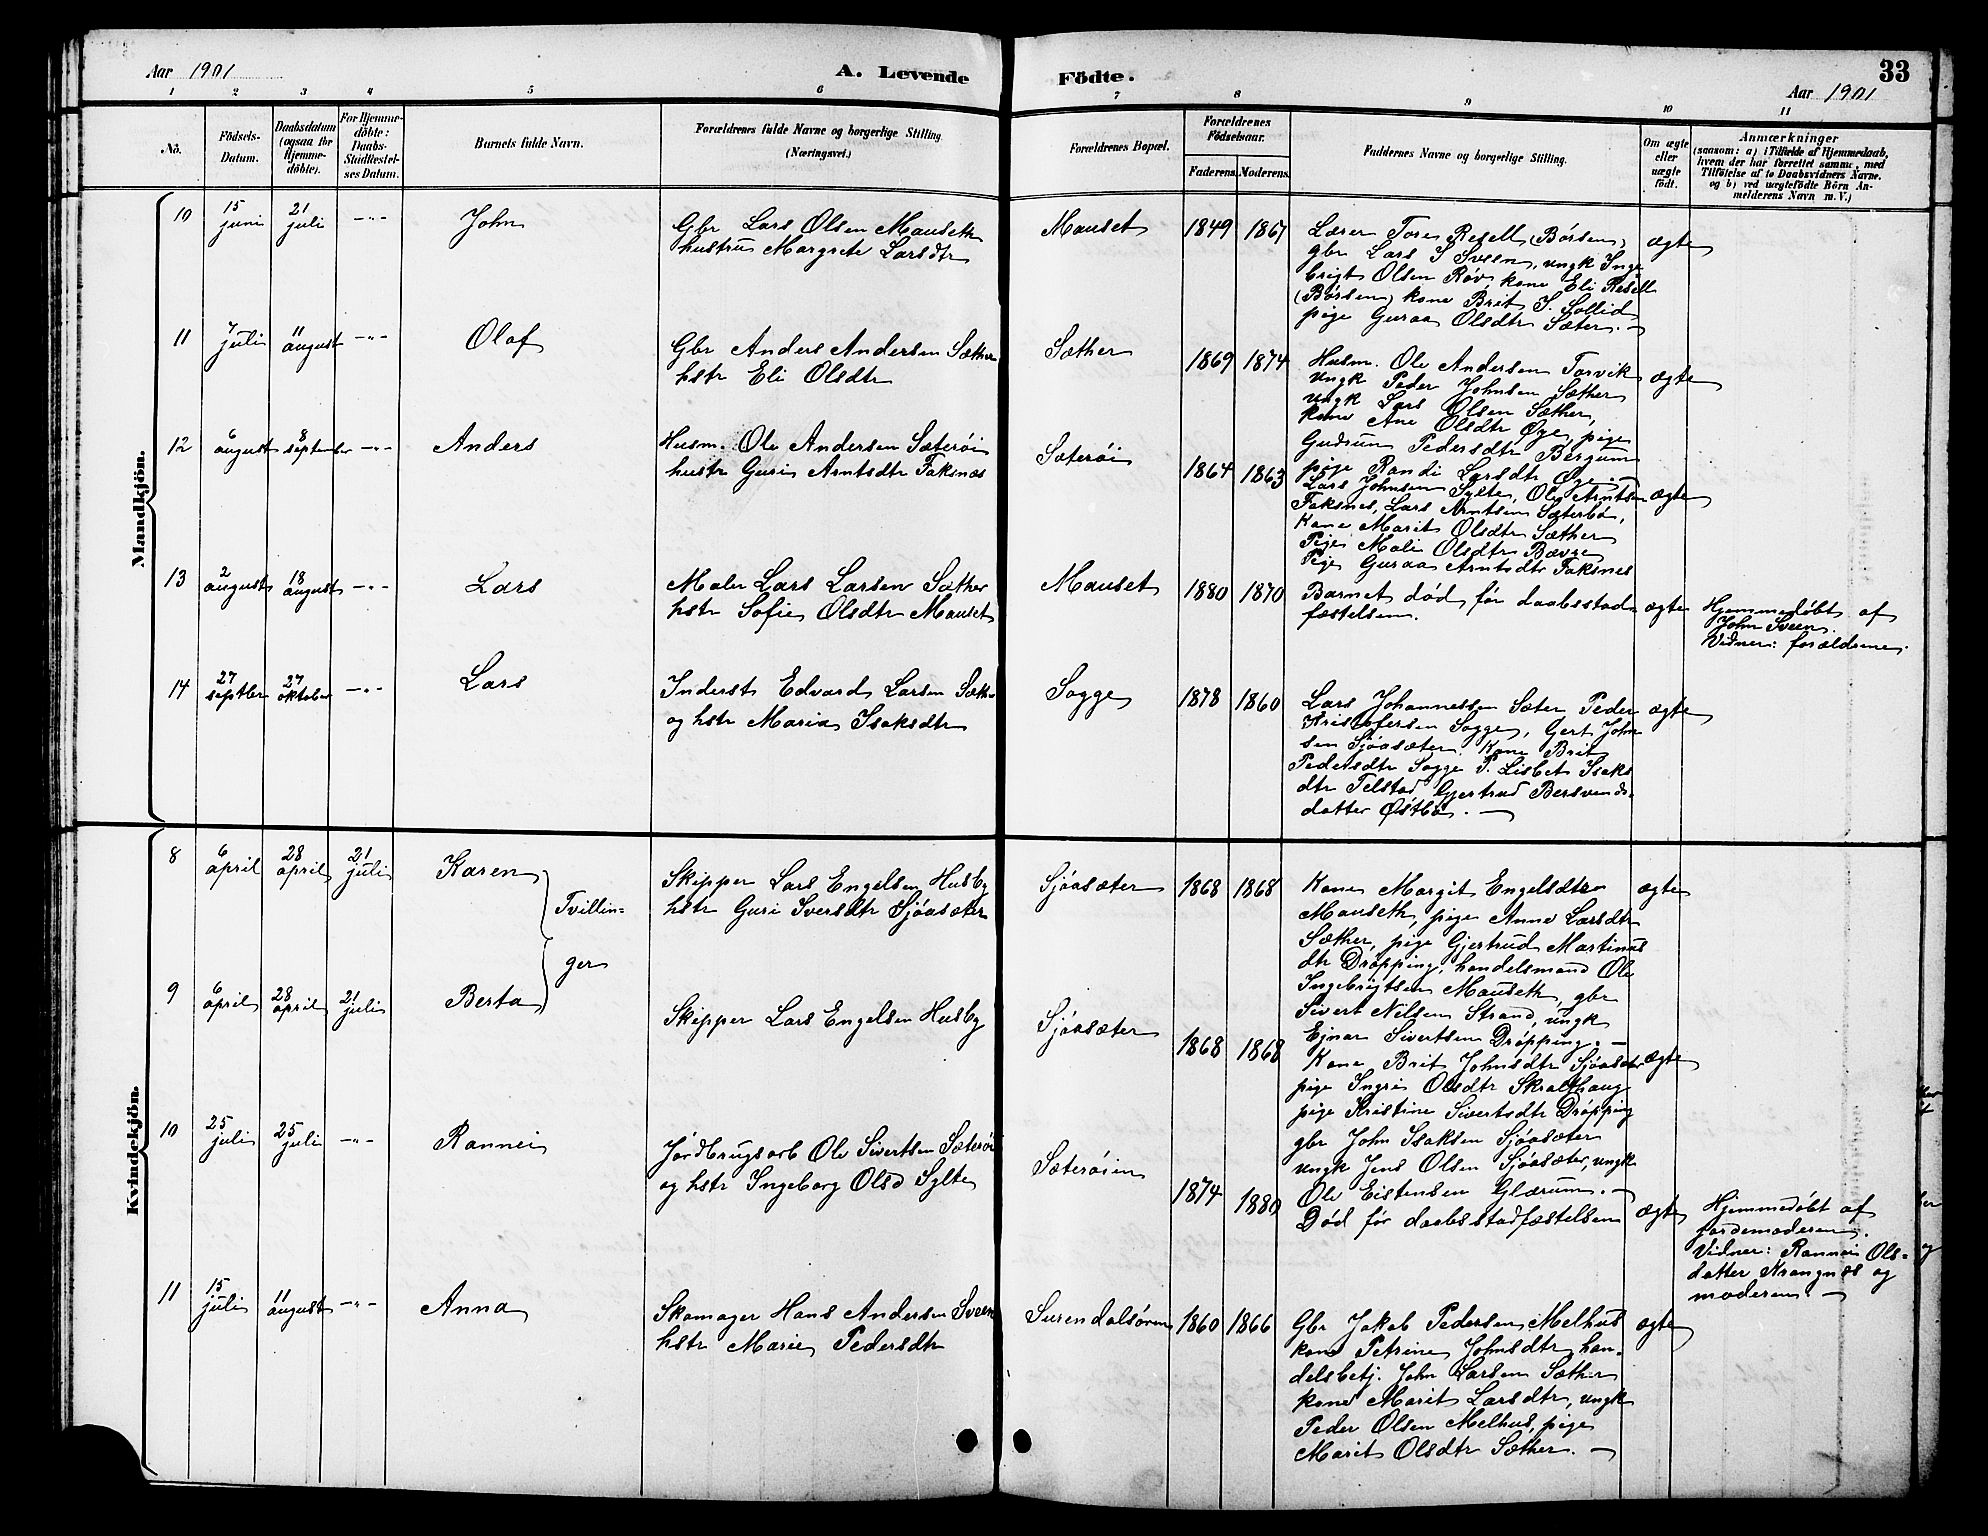 Aar 1901
A. Levende
Födte.
33
Aar 1901
1 2 3 4 5 6 7 8 9 10 11
No.
Födsels-
Datum.
Daabsdatum
(ogsaa for
Hjemme-
döbte).
For Hjemme-
döbte:
Daabs-
Stadfæstel-
ses Datum.
Barnets fulde Navn.
Forældrenes fulde Navne og borgerlige Stilling.
(Næringsvei.)
Forældrenes Bopæl.
Forældrenes
Födselsaar.
Faderens. Moderens.
Faddernes Navne og borgerlige Stilling.
Om ægte
eller
uægte
födt.
Anmærkninger
(saasom: a) i Tilfælde af Hjemmedaab,
hvem der har forrettet samme, med
Tilföielse af to Daabsvidners Navne.
og b) ved uægtefödte Börn An-
melderens Navn m. V.)
Mandkjön.
10
15
juni
21
juli
-"-
John
Gbr Lars Olsen Mauseth
hustru Margrete Larsdtr
Mauset
1849 1867
Lærer Tore Resell (Børsen)
gbr Lars I Sveen, ungk Inge
brigt Olsen Røv, kone Eli Resell
(Børsen) kone Brit I. Sollid
pige Guraa Olsdtr Sæter. —
ægte
11
7
juli
11
august
-"-
Olaf
Gbr Anders Andersen Sæther
hstr Eli Olsdtr
Sæther
1869 1874
Husm. Ole Andersen Torvik
ungk Peder Johnsen Sæther
ungk Lars Olsen Sæther,
kone Ane Olsdtr Øye, pige
Gudrun Pedersdtr Bergum
pige Randi Larsdtr Øye. —
ægte
12
6
august
8
september
-"-
Anders
Husm. Ole Andersen Sæterøi
hustr Guri Arntsdtr Faksnæs
Sæterøi
1864 1863
Lars Johnsen Sylte, Ole Arntsen
Faksnes, Lars Arntsen Sæterbø,
Kone Marit Olsdtr Sæther
Pige Mali Olsdtr Bævre
Pige Guraa Arntsdtr Faksnes
ægte
13
2
august
18
august
-"-
Lars
Maler Lars Larsen Sæther
hstr Sofie Olsdtr Mauset
Mauset
1880 1870
Barnet død før daabsstad
fæstelsen.
ægte
Hjemmedøbt af
John Sveen.
Vidner: forældrene.
14
27
septbr
27
oktober
-"-
Lars
Inderst Edvard Larsen Sæther
og hstr Maria Isaksdtr
Sogge
1878 1860
Lars Johannessen Sæter Peder
Kristofersen Sogge, Gert John
sen Sjøasæter. Kone Brit
Pedersdtr Sogge P. Lisbet Isaks
dtr Telstad Gjertrud Bersvends-
datter Østbø. —
ægte
Kvindekjön.
8
6
april
28
april
21
juli
Karen
Tvillin-
ger
Skipper Lars Engelsen Husby
hstr Guri Iversdtr Sjøasæter
Sjøasæter
1868 1868
Kone Margit Engelsdtr
Mauseth, pige Anne Larsdtr
Sæther, pige Gjertrud Martinus
dtr Drøpping, handelsmand Ole
Ingebrigtsen Mauseth, gbr
Sivert Nilsen Strand, ungk
Ejnar Sivertsen Drøpping. —
ægte
9
6
april
28
april
21
juli
Berta
Skipper Lars Engelsen Husby
Sjøasæter
1868 1868
Kone Brit Johnsdtr Sjøasæter
pige Ingri Olsdtr Skralthaug
pige Kristine Sivertsdtr Drøpping
gbr John Isaksen Sjøasæter
ungk Jens Olsen Sjøasæter, ungk
Ole Eistensen Glærum. —
ægte
10
25
juli
25
juli
-"-
Rannei
Jordbrugsarb Ole Sivertsen Sæterøi
og hstr Ingeborg Olsd Sylte
Sæterøien
1874 1880
Død før daabsstadfæstelsen
ægte
Hjemmedøbt af
jordemoderen.
Vidner: Rannei Ols-
datter Krangnes og
moderen. —
11
15
juli
11
august
-"-
Anna
Skomager Hans Andersen Sveen
hstr Marie Pedersdtr
Surendalsøren
1860 1866
Gbr Jakob Pedersen Melhus
kone Petrine Johnsdtr, han-
delsbetj. John Larsen Sæther
kone Marit Larsdtr, ungk
Peder Olsen Melhus, pige
Marit Olsdtr Sæther. —
ægte